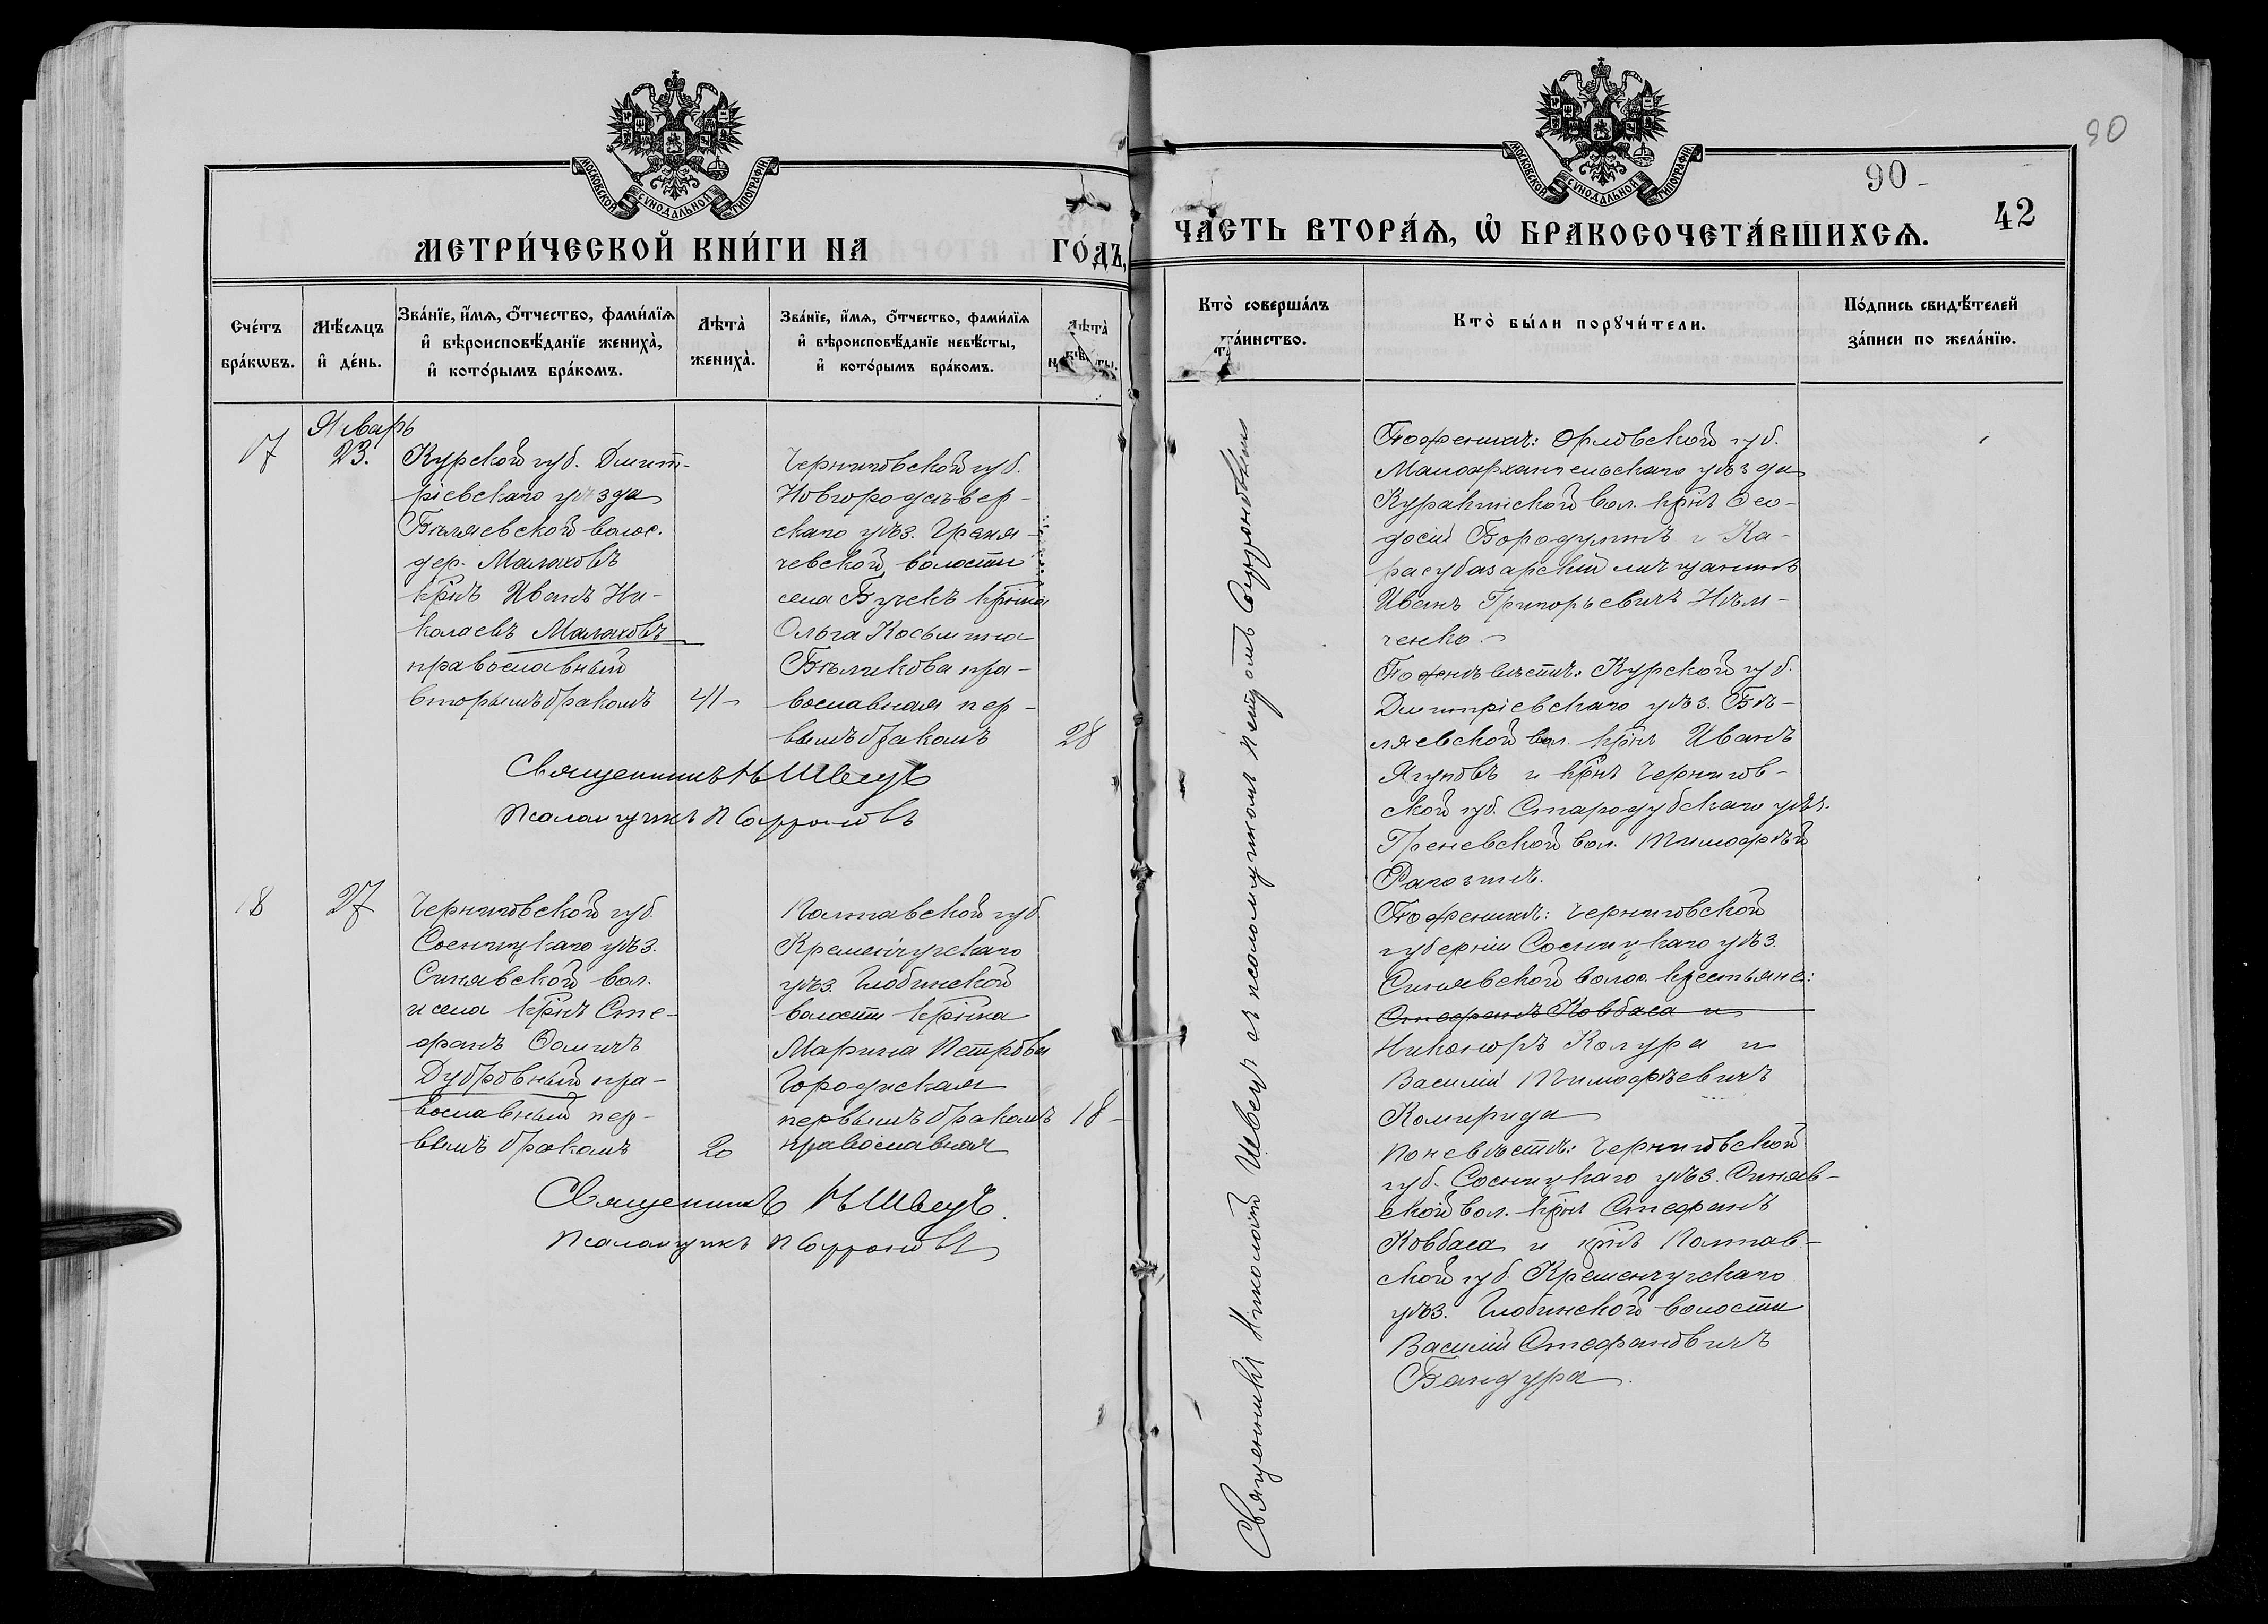 МОСКОВСКОЙ СѴНОДАЛЬНОЙ ТИПОГРАФІИ
МЕТРИ́ЧЕСКОЙ КНИ́ГИ НА ГО́ДЪ,
Сче́тъ бра́кѡвъ.
Мѣ́сѧцъ и҆ де́нь.
Зва́нїе, и҆́мѧ, ѻ҆́тчество, фами́лїѧ
и҆ вѣроисповѣ́данїе жениха̀,
и҆ кото́рымъ бра́комъ.
Лѣта̀ жениха̀.
Зва́нїе, и҆́мѧ, ѻ҆́тчество, фами́лїѧ
и҆ вѣроисповѣ́данїе невѣ́сты,
и҆ кото́рымъ бра́комъ.
Лѣта̀
17
Январь
23.
Курской губ. Дмит-
ріевскаго уѣзда
Бѣляевской волос.
дер. Малаховъ
крнъ Иванъ Ни-
колаевъ Малаховъ
православный
вторымъ бракомъ
41
Черниговской губ.
Новгородсѣвер-
скаго уѣз.
чевской волости
села крнка
Ольга Косьмина
Бѣликова пра-
вославная пер-
вымъ бракомъ
28
Священникъ Н Швецъ
Псаломщикъ П Софроновъ
18
27
Черниговской губ.
Сосницкаго уѣз.
Синявской вол.
и села крнъ Сте-
фанъ Ѳомичъ
Дубровный пра-
вославный пер-
вымъ бракомъ
20
Полтавской губ.
Кременчугскаго
уѣз. Глобинской
волости крнка
Марина Петрова
Городиская
первымъ бракомъ
православная
18
Священникъ Н Швецъ
Псаломщикъ П Софроновъ
МОСКОВСКОЙ СѴНОДАЛЬНОЙ ТИПОГРАФІИ
90
90
42
ЧА́СТЬ ВТОРА́Ѧ, Ѡ҆ БРАКОСОЧЕТА́ВШИХСѦ.
Кто̀ соверша́лъ
та́инство.
Кто̀ бы́ли порꙋчи́тели.
По́дпись свидѣ́телей
за́писи по жела́нїю.
Священникъ Николай Швецъ съ псаломщикомъ Петромъ Софроновымъ
По женихѣ: Орловской губ.
Малоархангельскаго уѣзда
Куракинской вол. крнъ Ѳео-
досій Бородулинъ и Ка-
расубазарскій мѣщанинъ
Иванъ Григорьевичъ Нѣм-
ченко.
По невѣстѣ: Курской губ.
Дмитріевскаго уѣз. Бѣ-
ляевской вол. крнъ Иванъ
Ягуновъ и крнъ Чернигов-
ской губ. Стародубскаго уѣз.
Греневской вол. Тимофѣй
Рагозинъ.
По женихѣ: Черниговской
губерніи Сосницкаго уѣз.
Синявской волос. крестьяне:
Стефанъ Ковбаса и
Никаноръ Колура и
Василій Тимофѣевичъ
По невѣстѣ: Черниговской
губ. Сосницкаго уѣз. Синяв-
ской вол. крнъ Стефанъ
Ковбаса и крнъ Полтав-
ской губ. Кременчугскаго
уѣз. Глобинской волости
Василій Стефановичъ
Бандура.